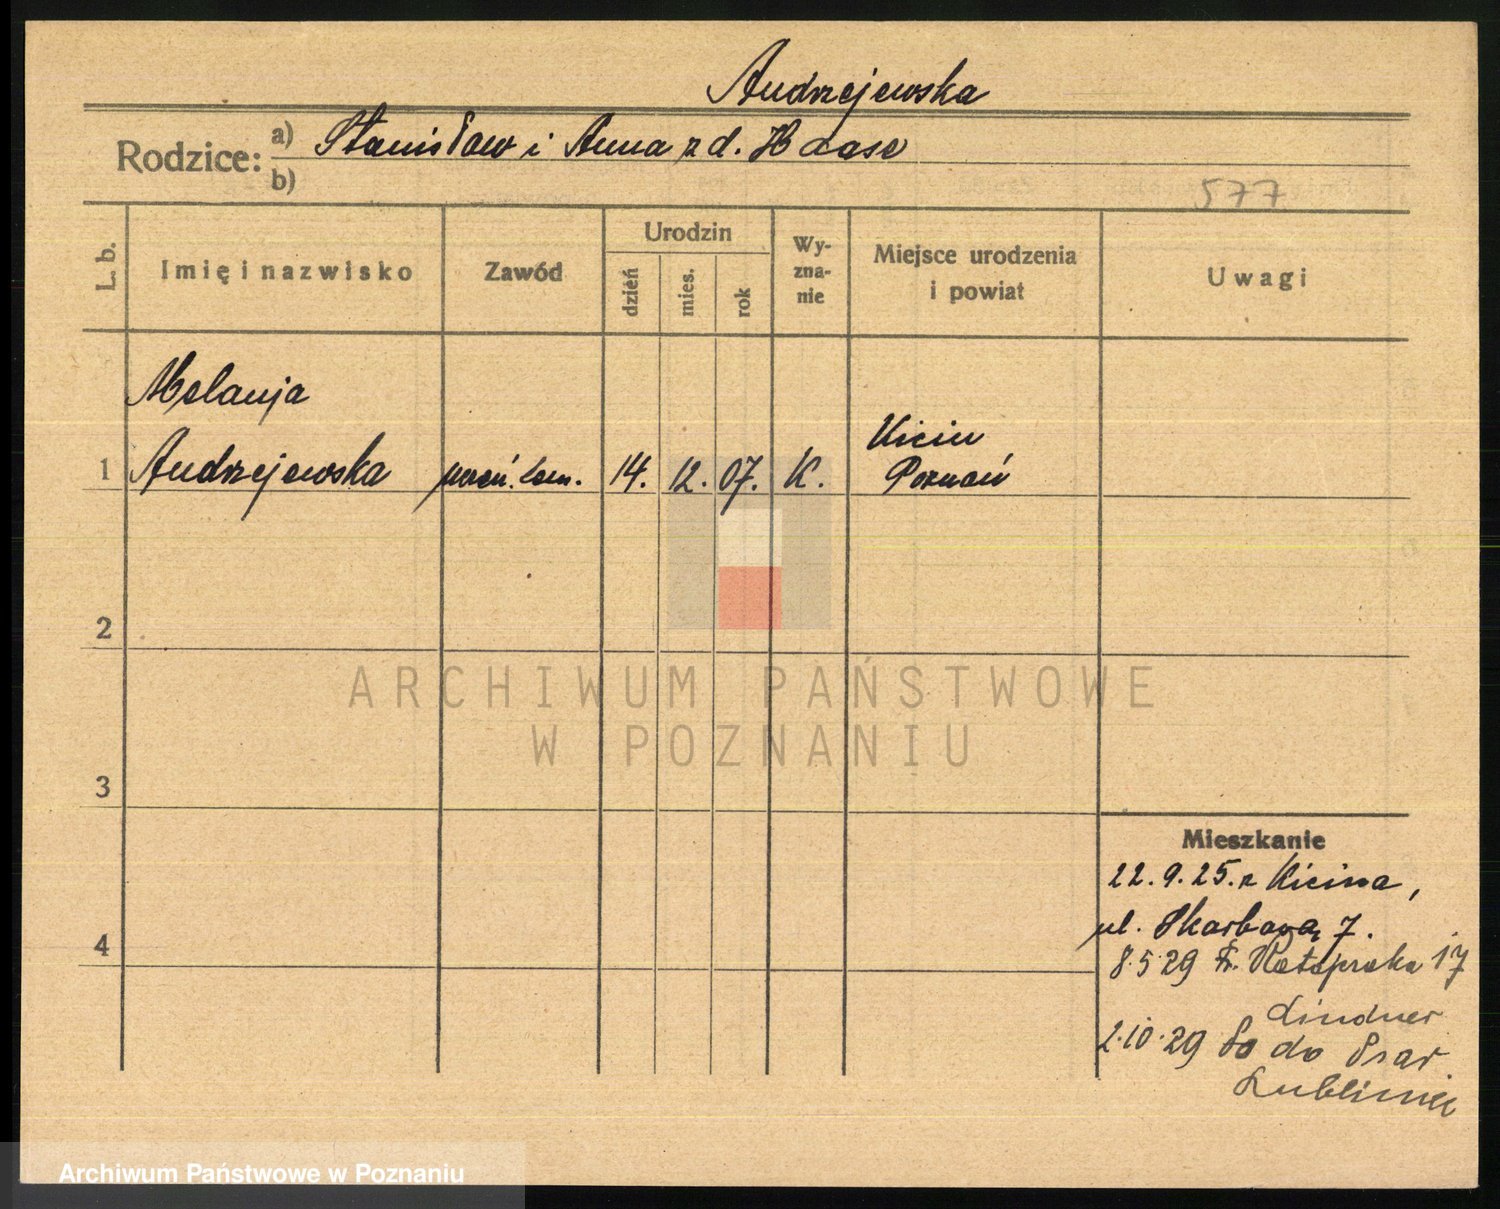 Andrzejewska
Rodzice: a) Stanisław i Anna z d. Haase
b)
577
L. b. Imię i nazwisko Zawód Urodzin dzień mies. rok Wy-zna-nie Miejsce urodzenia i powiat Uwagi
Melanja
Kicin
1 Andrzejewska 14. 12. 07. K. Poznań
2
ARCHIWUM PAŃSTWOWE
W POZNANIU
3
Mieszkanie
22.9.25. z Kicina,
ul. Skarbowa 7.
4
8.5.29 Fr. Ratajczaka 17
Lindner
2.10.29 do Psar
Lubliniec
Archiwum Państwowe w Poznaniu